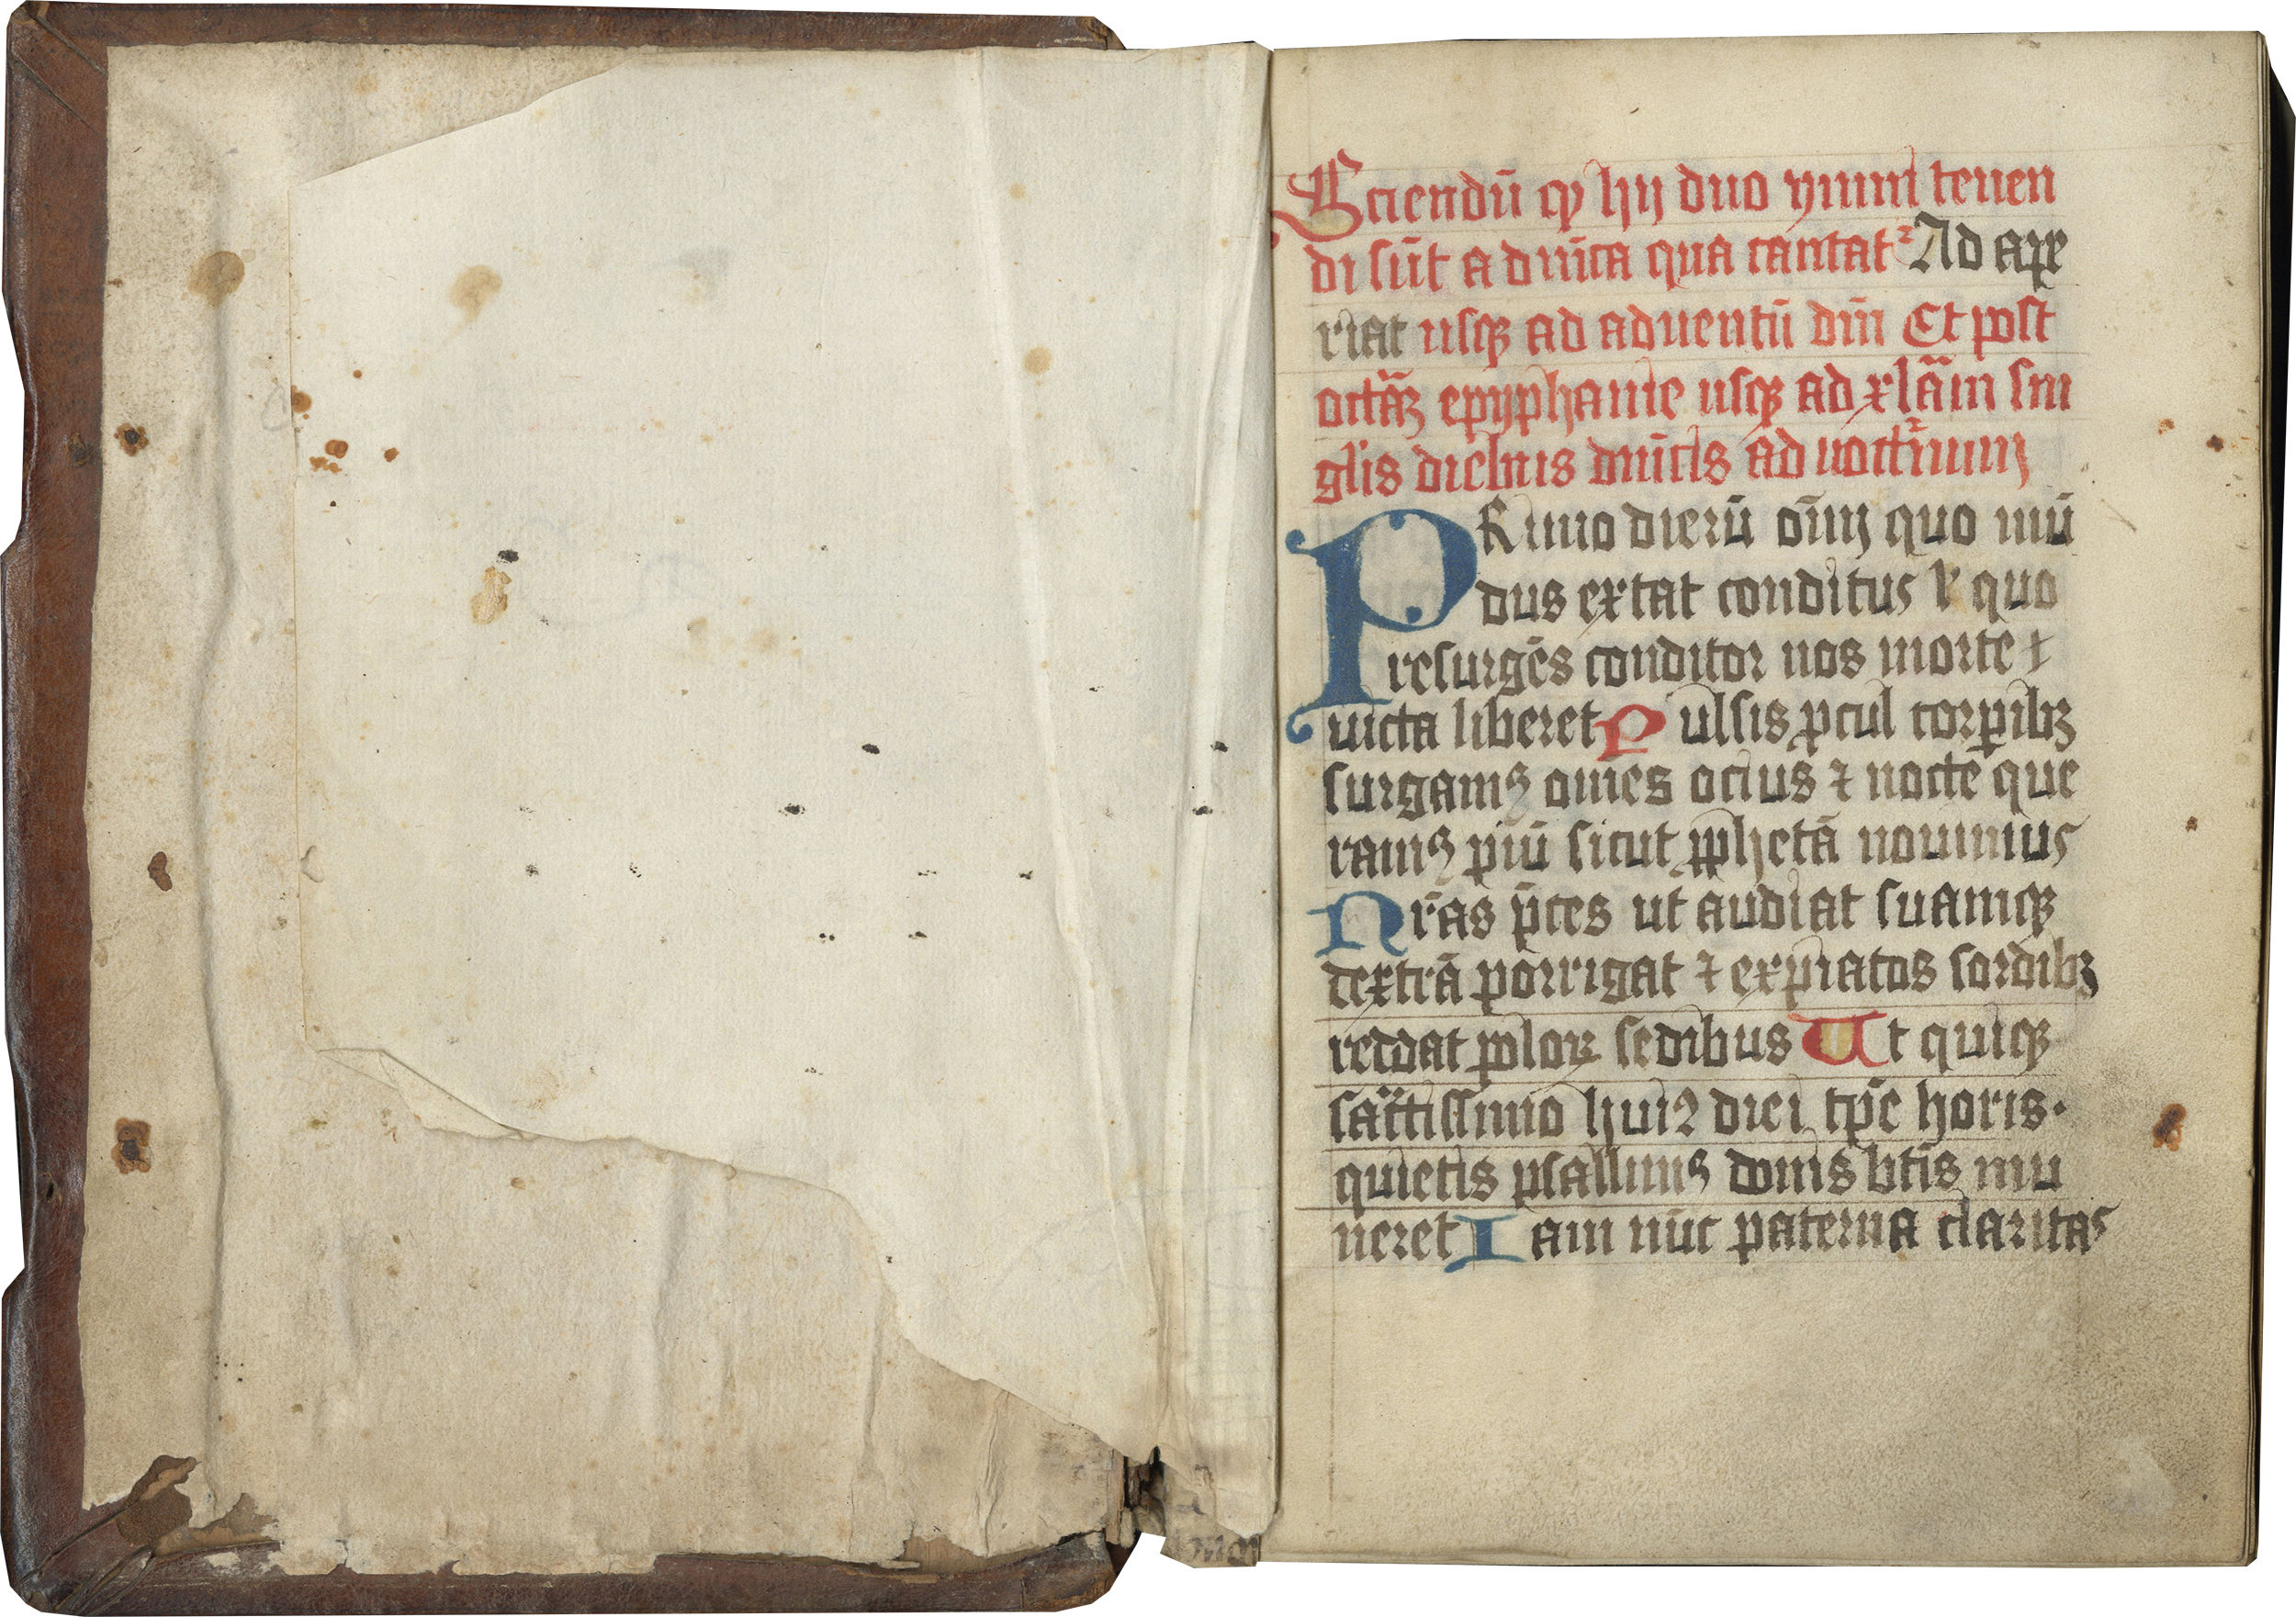 Sciendū qꝫ hij duo ymni tenen
di sūt a dnīca qua cantatᷣ Ad ape
riat usqꝫ ad aduentū dnī Et post
octāꝫ epyphanie usqꝫ ad xlām sin
glis diebus dnīcis ad nocturnum
PRimo dierū oīm quo mū
dus extat conditus ł quo
resurgēs conditor nos morte
uicta liberet Pulsis ꝓcul torpibꝫ
surgamꝰ omēs ocius ⁊ nocte que
ramꝰ piū sicut ꝓphetā nouimus
Nrās p̄ces ut audiat suamqꝫ
dextrā porrigat ⁊ expiatos sordibꝫ
reddat poloꝝ sedibus Ut quiqꝫ
sāctissimo huiꝰ diei tp̄e horis.
quietis psallimꝰ donis btīs mu
neret Iam nūc paterna claritas